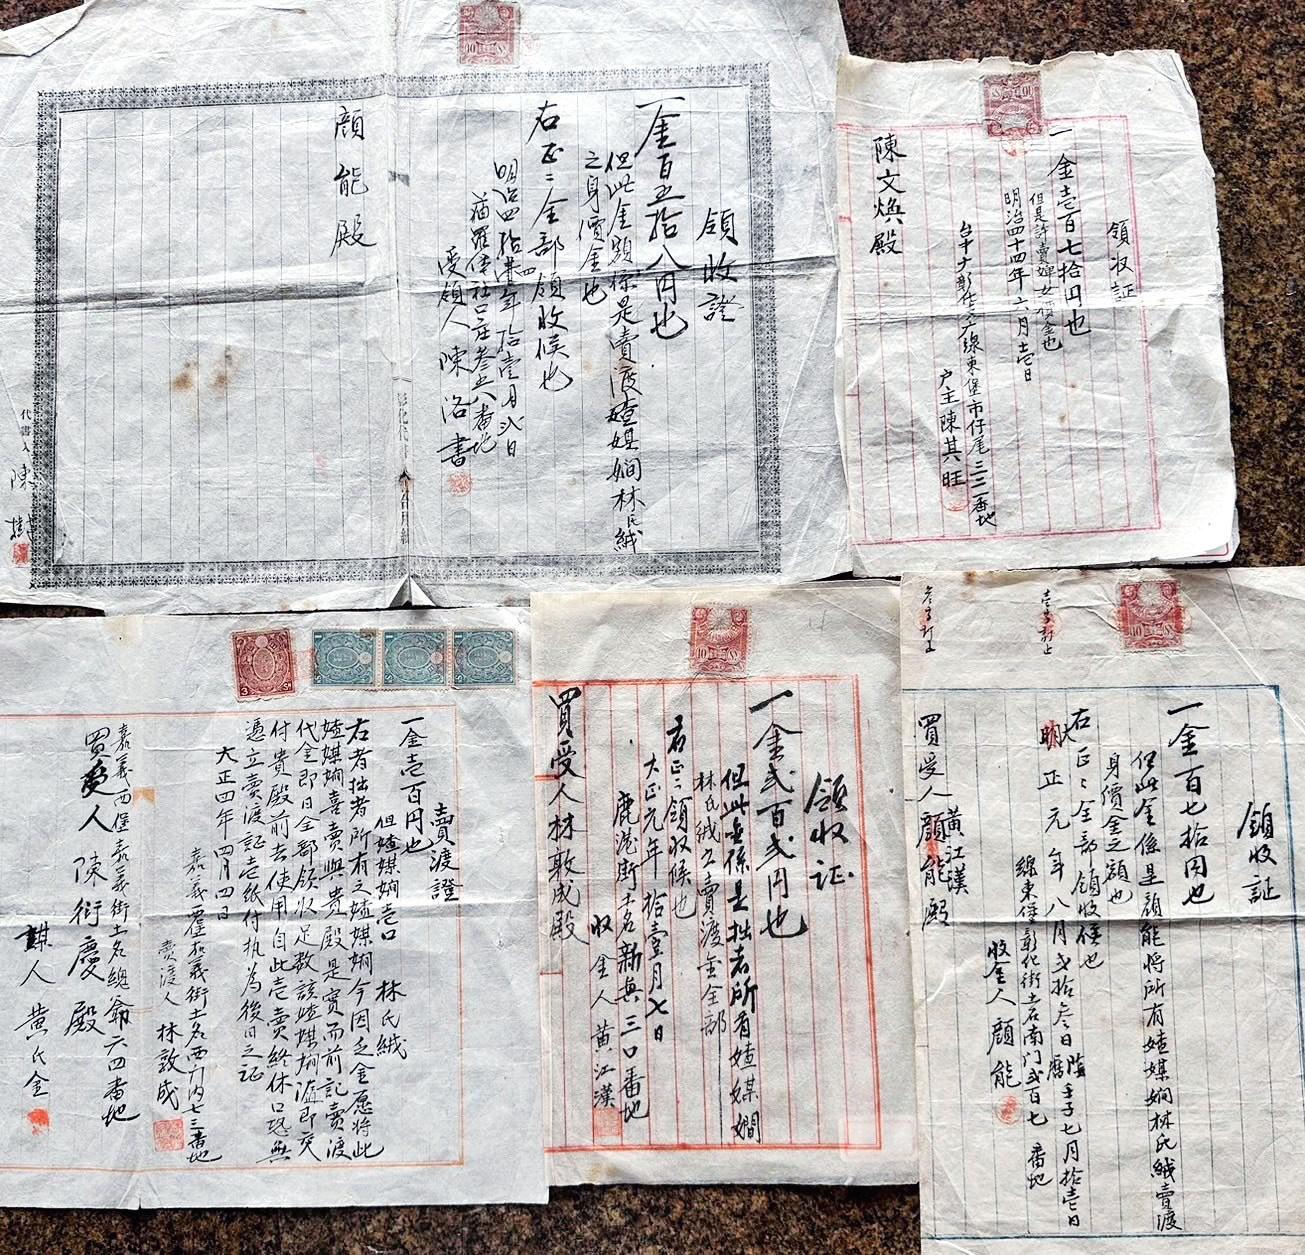 領收證
一金百五拾八円也
但此金額係是賣渡媎媒嫺林氏絨
之身價金也
右正ニ全部領收候也
明治四拾四年拾壹月弍日
社口庄叁五八番地
受領人 陳洛書
顔能殿
代書人 陳
領收証
一金壱百七拾円也
但是許賣婢女價金也
明治四十四年六月十壱日
線東堡市仔尾三二一番地
户主陳其旺
陳文煥殿
賣渡證
一金壱百円也
但媎媒嫺壱口 林氏絨
右者拙者所有之媎媒嫺今因乏金愿將此
媎媒嫺喜賣與貴殿是實而前記賣渡
代金即日全部領收足数該媎媒嫺隨即交
付貴殿前去使用自此壱賣終休口恐無
憑立賣渡証壱紙付执為後日之証
大正四年四月四日
嘉義西門内七三番地
賣渡人 林敦成
嘉義西堡嘉義街土名總爺六四番地
買受人 陳衍慶殿
人 黄氏金
領收证
一金弍百弍円也
但此金係是拙者所有媎媒嫺
林氏絨之賣渡金全部
右正ニ領収候也
大正元年拾壹月七日
鹿港街土名新興三〇番地
收金人 黄江漢
買受人林敦成殿
壱字訂正
叁字訂正
領收証
一金百七拾円也
但此金係是顔能將所有媎媒嫺林氏絨賣渡
身價金之額也
右正ニ全部領收候也
大正元年八月弍拾叁日舊曆壬子七月拾壱日
線東堡彰化街土名南门弍百七番地
收金人 顔能
買受人 黄江漢殿